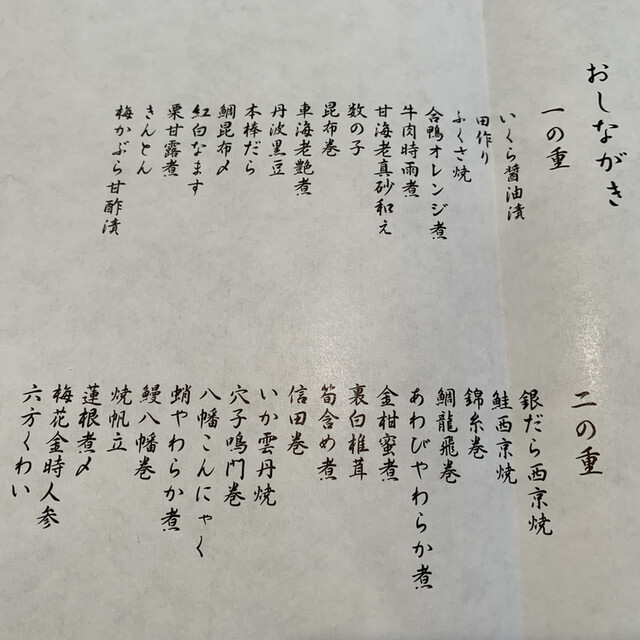 おしながき
一の重
いくら醤油漬
田作り
ふくさ焼
合鴨オレンジ煮
牛肉時雨煮
甘海老真砂和え
数の子
昆布巻
車海老艶煮
丹波黒豆
本棒だら
鯛昆布〆
紅白なます
栗甘露煮
きんとん
梅かぶら甘酢漬
二の重
銀だら西京焼
鮭西京焼
錦糸巻
鯛龍飛巻
あわびやわらか煮
金柑蜜煮
裏白椎茸
筍含め煮
信田巻
いか雲丹焼
穴子鳴門巻
八幡こんにゃく
蛸やわらか煮
鰻八幡巻
焼帆立
蓮根煮〆
梅花金時人参
六方くわい